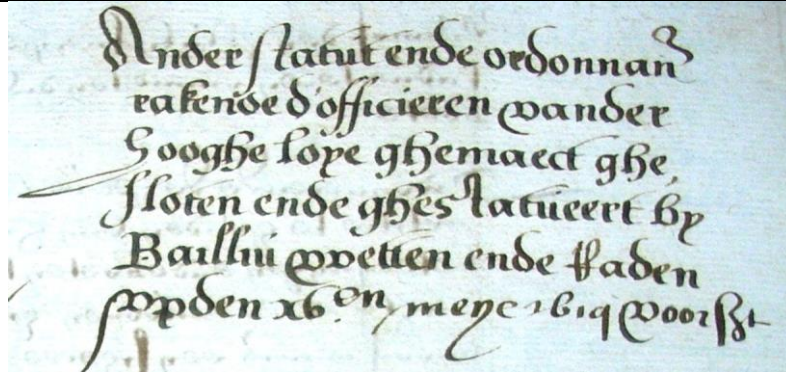 Ander statut ende ordonnan
rakende d'officieren vander
hooghe loye ghemaect ghe,
sloten ende ghestatueert by
Bailliu wetten ende Raden
upden xv.en meye voorszt